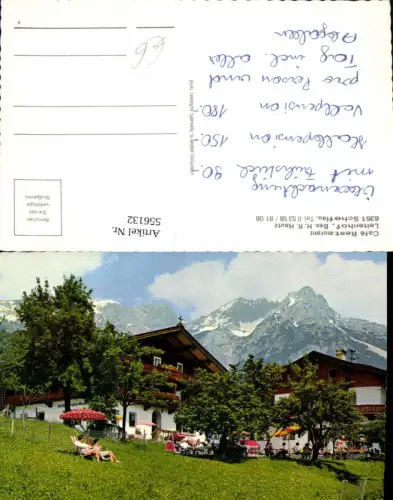 Café Restaurant
Leitenhof, Bes. H. R. Hautz
6351 Scheffau, Tel. 0 53 58 / 81 08
Übernachtung
mit Frühstück 90.-
Halbpension 150.-
Vollpension 180.-
pro Person und
Tag incl. aller
Abgaben
Artikel Nr.
556132
Benutzen
Sie das
verbilligte